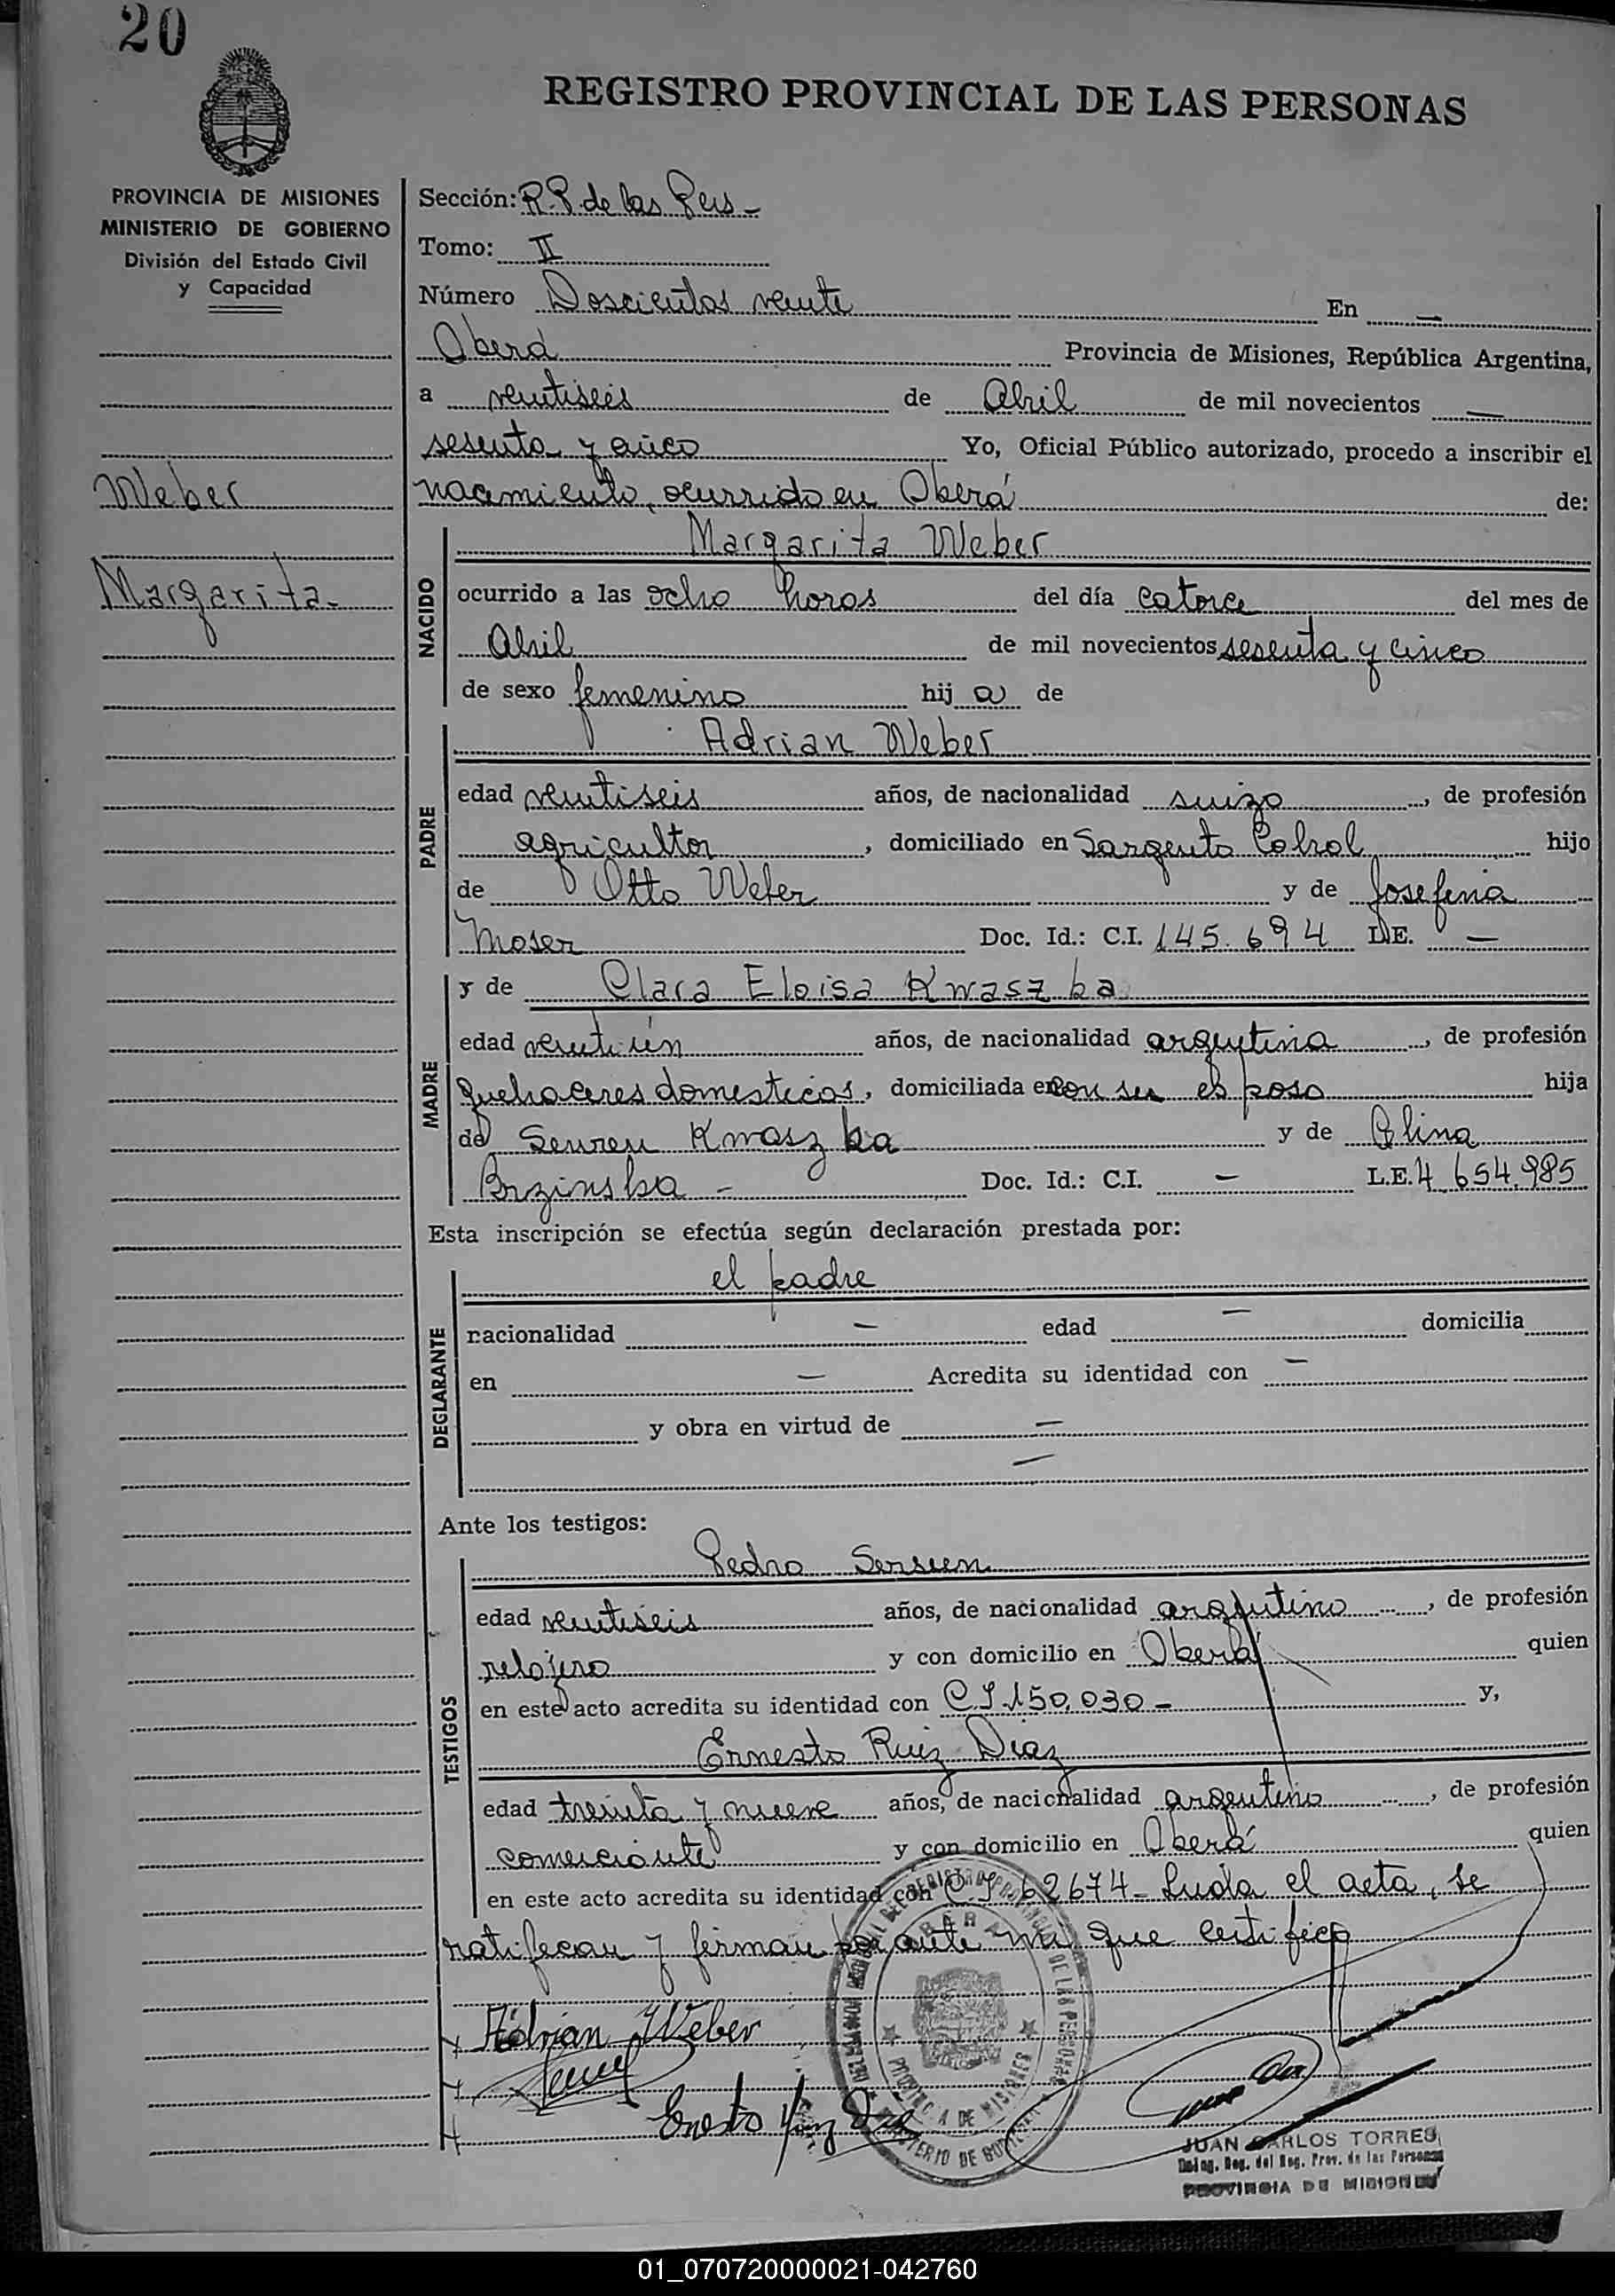 20
REGISTRO PROVINCIAL DE LAS PERSONAS
PROVINCIA DE MISIONES
MINISTERIO DE GOBIERNO
División del Estado Civil
y Capacidad
Weber
Margarita-
Sección: R.P. de las Pers-
Tomo: II
Número Doscientos veinte En —
Oberá Provincia de Misiones, República Argentina,
a veintiseis de Abril de mil novecientos —
sesenta y cinco Yo, Oficial Público autorizado, procedo a inscribir el
nacimiento, ocurrido en Oberá de:
NACIDO
Margarita Weber
ocurrido a las ocho horas del día catorce del mes de
Abril de mil novecientos sesenta y cinco
de sexo femenino hij a de
PADRE
Adrian Weber
edad veintiseis años, de nacionalidad suizo, de profesión
agricultor, domiciliado en Sargento Cabral hijo
de Otto Weber y de Josefina
Moser Doc. Id.: C.I. 145.694 L.E. —
MADRE
y de Clara Eloisa Kwaszka
edad veintiún años, de nacionalidad argentina, de profesión
quehaceres domesticos, domiciliada en con su esposo hija
de Kwaszka y de
Brzinska - Doc. Id.: C.I. — L.E. 4.654.985
Esta inscripción se efectúa según declaración prestada por:
DECLARANTE
el padre
nacionalidad — edad — domicilia
en — Acredita su identidad con —
y obra en virtud de —
—
Ante los testigos:
TESTIGOS
Pedro
edad veintiseis años, de nacionalidad argentino, de profesión
relojero y con domicilio en Oberá quien
en este acto acredita su identidad con C I 150.030 - y,
Ernesto Ruiz Diaz
edad treinta y nueve años, de nacionalidad argentino, de profesión
comerciante y con domicilio en Oberá quien
en este acto acredita su identidad con C I 62674- Leida el acta, se
ratifican y firman por ante mi que certifico
Adrian Weber
Ernesto Ruiz Diaz
OBERA
PROVINCIA DE MISIONES
MINISTERIO DE GOBIERNO
JUAN CARLOS TORRES
Reg. Prov. de las Personas
PROVINCIA DE MISIONES
01_070720000021-042760